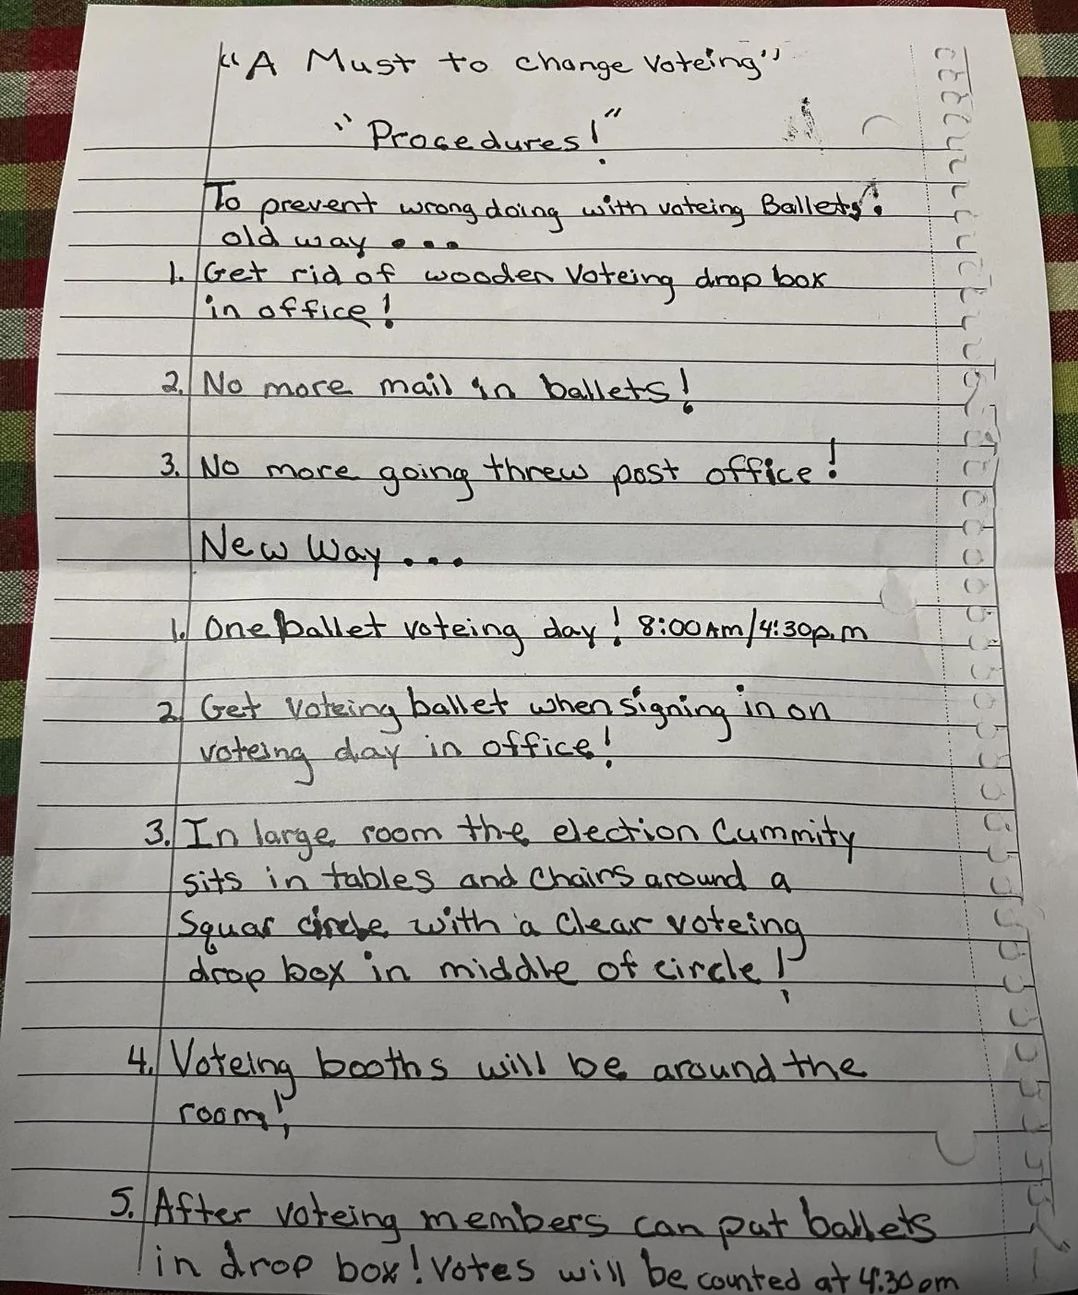 "A Must to change voteing"
"Procedures!"
To prevent wrong doing with voteing Ballets!
old way ...
1. Get rid of wooden voteing drop box
in office!
2. No more mail in ballets!
3. No more going threw post office!
New Way ...
1. One ballet voteing day! 8:00 Am/4:30p.m
2. Get voteing ballet when signing in on
voteing day in office!
3. In large room the election Cummity
sits in tables and chairs around a
Squar circle with a clear voteing
drop box in middle of circle!
4. Voteing booths will be around the
room!
5. After voteing members can put ballets
in drop box! Votes will be counted at 4:30pm